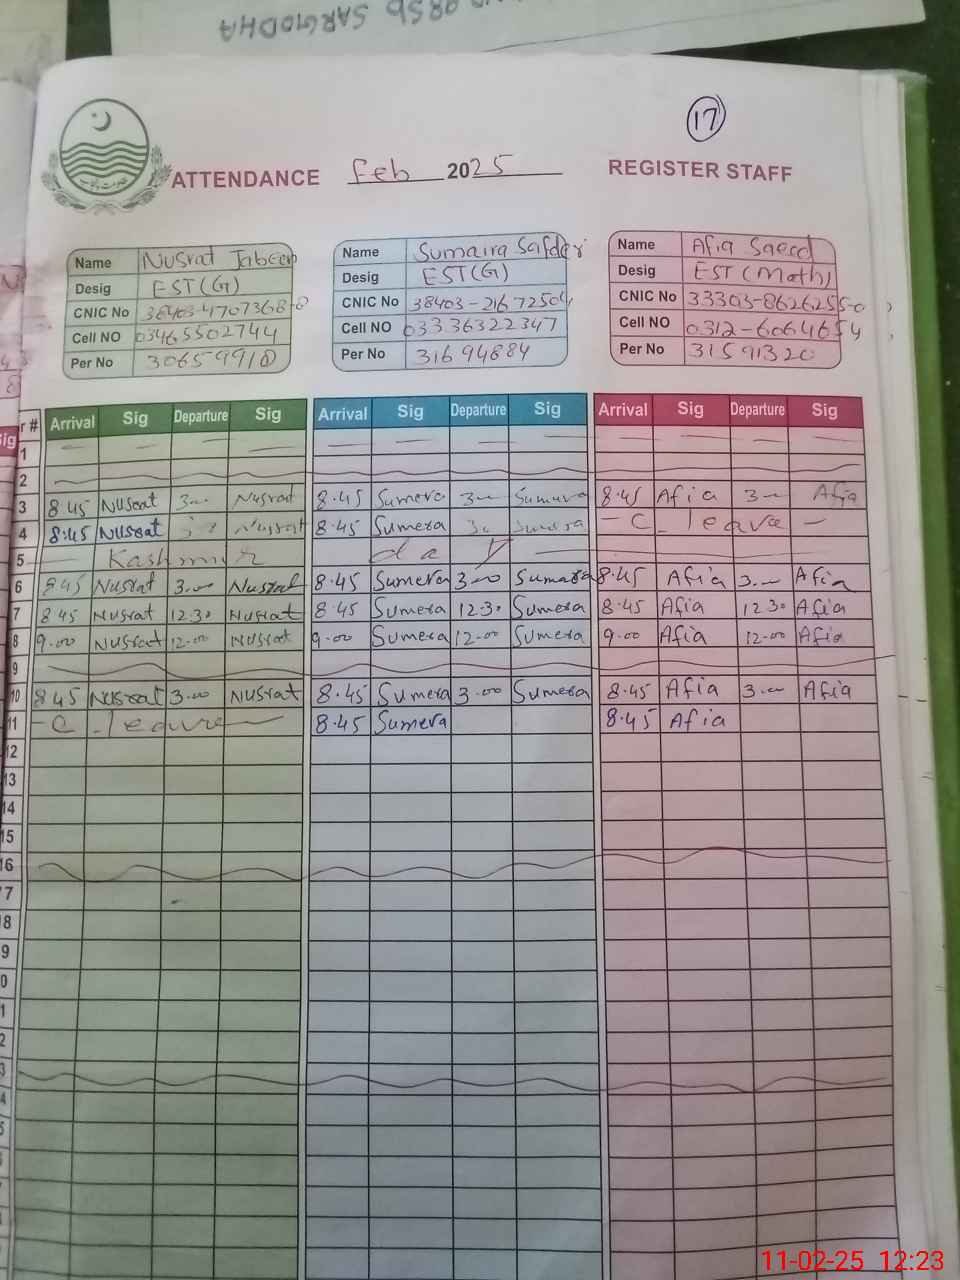 SARGODHA
17
ATTENDANCE Feb 2025 REGISTER STAFF
Name Nusrat Jabeen Name Sumaira Safder Name Afia Saeed
Desig EST(G) Desig EST(G) Desig EST(Math)
CNIC No 38403-4707368-8 CNIC No 38403-2167250- CNIC No 33303-8626255-0
Cell NO 03465502744 Cell NO 03336322347 Cell NO 0312-6064654
Per No 30659910 Per No 31694884 Per No 31591320
r # Arrival Sig Departure Sig Arrival Sig Departure Sig Arrival Sig Departure Sig
1
2
3 8.45 Nusrat 3— Nusrat 8.45 Sumera 3— Sumera 8.45 Afia 3— Afia
4 8:45 Nusrat Nusrat 8.45 Sumera 3. Sumera – C. leave –
5 Kashmir day
6 8.45 Nusrat 3.00 Nusrat 8.45 Sumera 3.00 Sumera 8.45 Afia 3.00 Afia
7 8.45 Nusrat 12.30 Nusrat 8.45 Sumera 12.30 Sumera 8.45 Afia 12.30 Afia
8 9.00 Nusrat 12.00 Nusrat 9.00 Sumera 12.00 Sumera 9.00 Afia 12.00 Afia
9
10 8.45 Nusrat 3.00 Nusrat 8.45 Sumera 3.00 Sumera 8.45 Afia 3.00 Afia
11 – C. leave – 8.45 Sumera 8.45 Afia
12
13
14
15
16
7
8
9
0
1
2
3
4
5
11-02-25 12:23